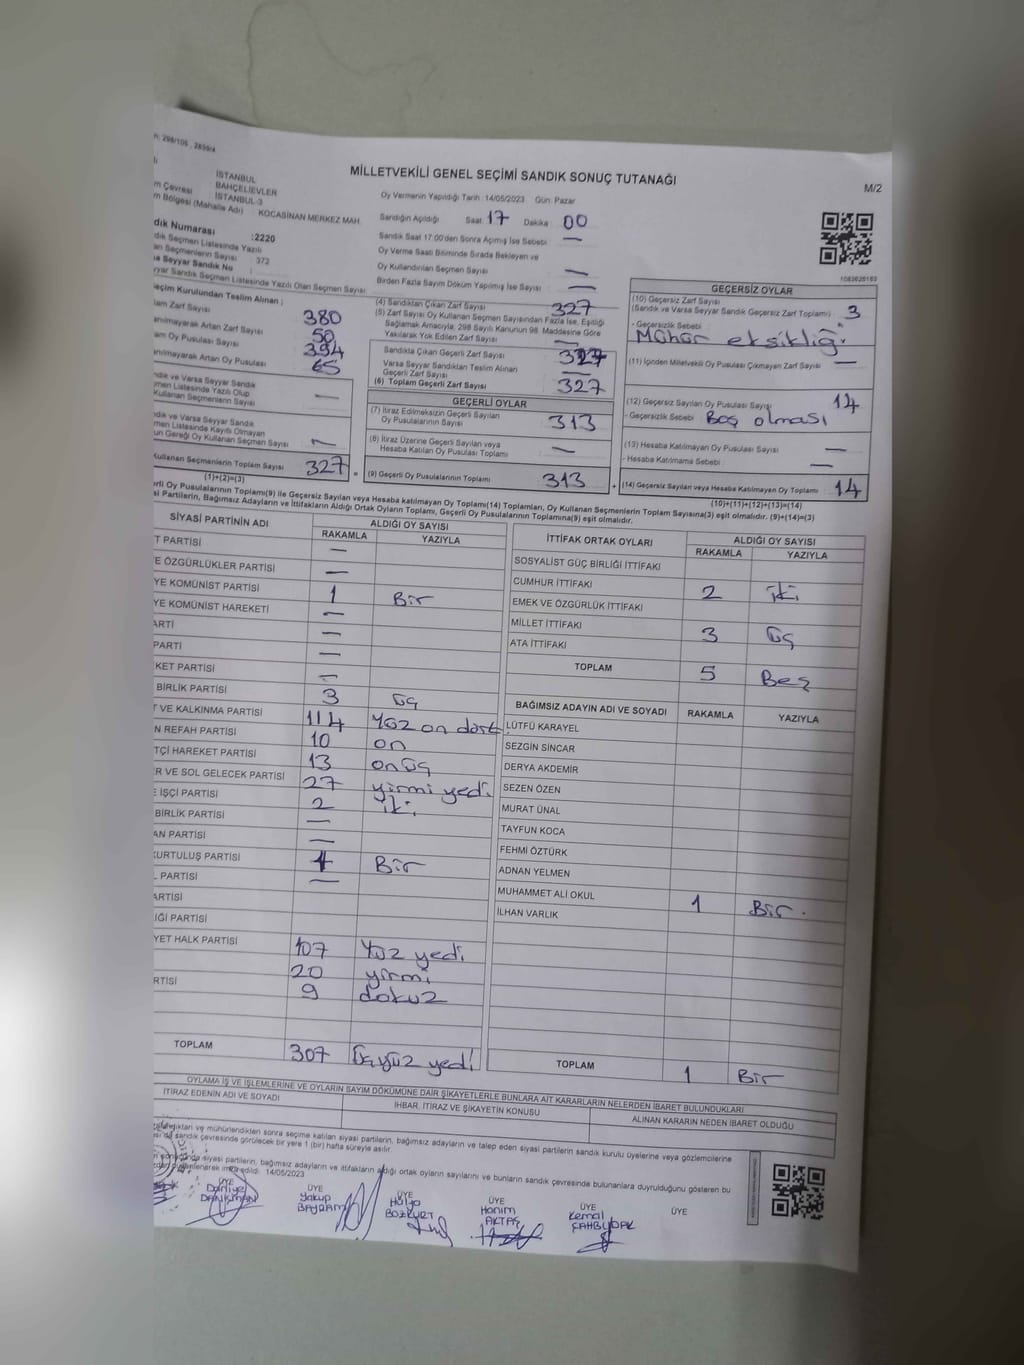 298/105
MİLLETVEKİLİ GENEL SEÇİMİ SANDIK SONUÇ TUTANAĞI
M/2
İSTANBUL
BAHÇELİEVLER
m Çevresi İSTANBUL-3
m Bölgesi (Mahalle Adı) KOCASİNAN MERKEZ MAH.
Oy Vermenin Yapıldığı Tarih: 14/05/2023 Gün: Pazar
Sandığın Açıldığı Saat 17 Dakika 00
Sandık Saat 17:00'den Sonra Açılmış İse Sebebi —
Oy Verme Saati Bitiminde Sırada Bekleyen ve
Oy Kullandırılan Seçmen Sayısı —
Birden Fazla Sayım Döküm Yapılmış İse Sayısı —
dık Numarası :2220
dık Seçmen Listesinde Yazılı
an Seçmenlerin Sayısı 372
a Seyyar Sandık No
yyar Sandık Seçmen Listesinde Yazılı Olan Seçmen Sayısı
eçim Kurulundan Teslim Alınan ;
lam Zarf Sayısı 380
anılmayarak Artan Zarf Sayısı 50
am Oy Pusulası Sayısı 394
anılmayarak Artan Oy Pusulası 65
ndık ve Varsa Seyyar Sandık
men Listesinde Yazılı Olup
Kullanan Seçmenlerin Sayısı —
ndık ve Varsa Seyyar Sandık
men Listesinde Kayıtlı Olmayan
un Gereği Oy Kullanan Seçmen Sayısı —
Kullanan Seçmenlerin Toplam Sayısı 327
(1)+(2)=(3)
(4) Sandıktan Çıkan Zarf Sayısı 327
(5) Zarf Sayısı Oy Kullanan Seçmen Sayısından Fazla İse, Eşitliği
Sağlamak Amacıyla, 298 Sayılı Kanunun 98. Maddesine Göre
Yakılarak Yok Edilen Zarf Sayısı —
Sandıkta Çıkan Geçerli Zarf Sayısı 327
Varsa Seyyar Sandıktan Teslim Alınan
Geçerli Zarf Sayısı —
(6) Toplam Geçerli Zarf Sayısı 327
GEÇERLİ OYLAR
(7) İtiraz Edilmeksizin Geçerli Sayılan
Oy Pusulalarının Sayısı 313
(8) İtiraz Üzerine Geçerli Sayılan veya
Hesaba Katılan Oy Pusulası Toplamı —
(9) Geçerli Oy Pusulalarının Toplamı 313
1083626163
GEÇERSİZ OYLAR
(10) Geçersiz Zarf Sayısı
(Sandık ve Varsa Seyyar Sandık Geçersiz Zarf Toplamı) 3
- Geçersizlik Sebebi :
Mühür eksikliği
(11) İçinden Milletvekili Oy Pusulası Çıkmayan Zarf Sayısı —
(12) Geçersiz Sayılan Oy Pusulası Sayısı 14
- Geçersizlik Sebebi Boş olması
(13) Hesaba Katılmayan Oy Pusulası Sayısı —
- Hesaba Katılmama Sebebi : —
(14) Geçersiz Sayılan veya Hesaba Katılmayan Oy Toplamı 14
(10)+(11)+(12)+(13)=(14)
erli Oy Pusulalarının Toplamı(9) ile Geçersiz Sayılan veya Hesaba katılmayan Oy Toplamı(14) Toplamları, Oy Kullanan Seçmenlerin Toplam Sayısına(3) eşit olmalıdır. (9)+(14)=(3)
si Partilerin, Bağımsız Adayların ve İttifakların Aldığı Ortak Oyların Toplamı, Geçerli Oy Pusulalarının Toplamına(9) eşit olmalıdır.
SİYASİ PARTİNİN ADI ALDIĞI OY SAYISI
RAKAMLA YAZIYLA
T PARTİSİ —
E ÖZGÜRLÜKLER PARTİSİ —
YE KOMÜNİST PARTİSİ 1 Bir
YE KOMÜNİST HAREKETİ —
ARTİ —
PARTİ —
KET PARTİSİ —
BİRLİK PARTİSİ 3 üç
T VE KALKINMA PARTİSİ 114 Yüz on dört
N REFAH PARTİSİ 10 on
TÇİ HAREKET PARTİSİ 13 on üç
ER VE SOL GELECEK PARTİSİ 27 yirmi yedi
E İŞÇİ PARTİSİ 2 iki
BİRLİK PARTİSİ —
AN PARTİSİ —
KURTULUŞ PARTİSİ 1 Bir
L PARTİSİ —
ARTİSİ
IĞI PARTİSİ
YET HALK PARTİSİ 107 Yüz yedi
20 yirmi
RTİSİ 9 dokuz
TOPLAM 307 Üçyüz yedi
İTTİFAK ORTAK OYLARI ALDIĞI OY SAYISI
RAKAMLA YAZIYLA
SOSYALİST GÜÇ BİRLİĞİ İTTİFAKI
CUMHUR İTTİFAKI 2 iki
EMEK VE ÖZGÜRLÜK İTTİFAKI
MİLLET İTTİFAKI 3 üç
ATA İTTİFAKI
TOPLAM 5 Beş
BAĞIMSIZ ADAYIN ADI VE SOYADI RAKAMLA YAZIYLA
LÜTFÜ KARAYEL
SEZGİN SİNCAR
DERYA AKDEMİR
SEZEN ÖZEN
MURAT ÜNAL
TAYFUN KOCA
FEHMİ ÖZTÜRK
ADNAN YELMEN
MUHAMMET ALİ OKUL 1 Bir.
İLHAN VARLIK
TOPLAM 1 Bir
OYLAMA İŞ VE İŞLEMLERİNE VE OYLARIN SAYIM DÖKÜMÜNE DAİR ŞİKAYETLERLE BUNLARA AİT KARARLARIN NELERDEN İBARET BULUNDUKLARI
İTİRAZ EDENİN ADI VE SOYADI İHBAR, İTİRAZ VE ŞİKAYETİN KONUSU ALINAN KARARIN NEDEN İBARET OLDUĞU
ve mühürlendikten sonra seçime katılan siyasi partilerin, bağımsız adayların ve talep eden siyasi partilerin sandık kurulu üyelerine veya gözlemcilerine
sandık çevresinde görülecek bir yere 1 (bir) hafta süreyle asılır.
siyasi partilerin, bağımsız adayların ve ittifakların aldığı ortak oyların sayılarını ve bunların sandık çevresinde bulunanlara duyrulduğunu gösteren bu
düzenlenerek imza edildi. 14/05/2023
ÜYE ÜYE ÜYE ÜYE ÜYE ÜYE
Daniyel DANIŞMAN
Yakup BAYRAM
Hülya BOZKURT
Hanım AKTAŞ
Kemal